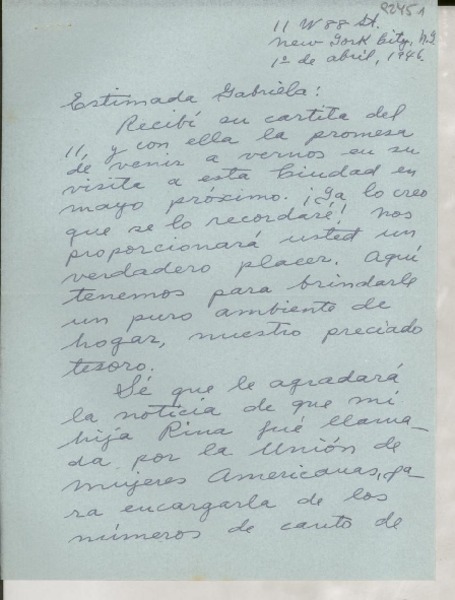 82451
11 W 88 St.
New York City, N.Y
1º de abril, 1946.
Estimada Gabriela:
Recibí su cartita del
11, y con ella la promesa
de venir a vernos en su
visita a esta Ciudad en
mayo próximo. ¡Ya lo creo
que se lo recordaré! Nos
proporcionará usted un
verdadero placer. Aquí
tenemos para brindarle
un puro ambiente de
hogar, nuestro preciado
tesoro.
Sé que le agradará
la noticia de que mi
hija Rina fué llama-
da por la Unión de
Mujeres Americanas, pa-
ra encargarla de los
números de canto de